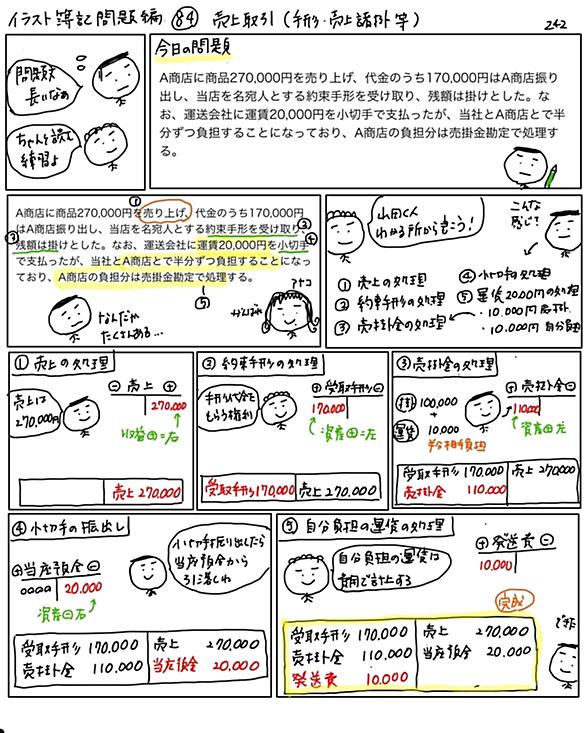 イラスト簿記問題編 84 売上取引(手形・売上諸掛等)
242
問題文
長いなあ
ちゃんと読む
練習よ
今日の問題
A商店に商品270,000円を売り上げ、代金のうち170,000円はA商店振り
出し、当店を名宛人とする約束手形を受け取り、残額は掛けとした。な
お、運送会社に運賃20,000円を小切手で支払ったが、当社とA商店とで半
分ずつ負担することになっており、A商店の負担分は売掛金勘定で処理す
る。
①
A商店に商品270,000円を売り上げ、代金のうち170,000円
はA商店振り出し、当店を名宛人とする約束手形を受け取り、②
③残額は掛けとした。なお、運送会社に運賃20,000円を小切手④
で支払ったが、当社とA商店とで半分ずつ負担することになっ
ており、A商店の負担分は売掛金勘定で処理する。
⑤
なんだか
たくさんある…
がんばれ
山田くん
わかる所から言こう!
こんな
感じで
① 売上の処理
② 約束手形の処理
③ 売掛金の処理
④ 小切手の処理
⑤ 運賃20.000円の処理
・10.000円 売掛
・10.000円 自分負担
① 売上の処理
売上は
270,000円
⊖ 売上 ⊕
270,000
収益⊕=右
売上 270,000
② 約束手形の処理
手形代金を
もらう権利
⊕受取手形⊖
170,000
資産⊕=左
受取手形 170,000 売上 270,000
③ 売掛金の処理
掛 100,000
+
運賃 10,000
半分相手負担
⊕売掛金⊖
110,000
資産⊕左
受取手形 170,000 売上 270,000
売掛金 110,000
④ 小切手の振出し
⊕当座預金⊖
0000 20.000
資産⊖右
小切手振り出したら
当座預金から
引き落しね
受取手形 170,000 売上 270,000
売掛金 110,000 当座預金 20,000
⑤ 自分負担の運賃の処理
自分負担の運賃は
費用で計上する
⊕発送費⊖
10.000
完成
受取手形 170,000 売上 270,000
売掛金 110,000 当座預金 20,000
発送費 10,000